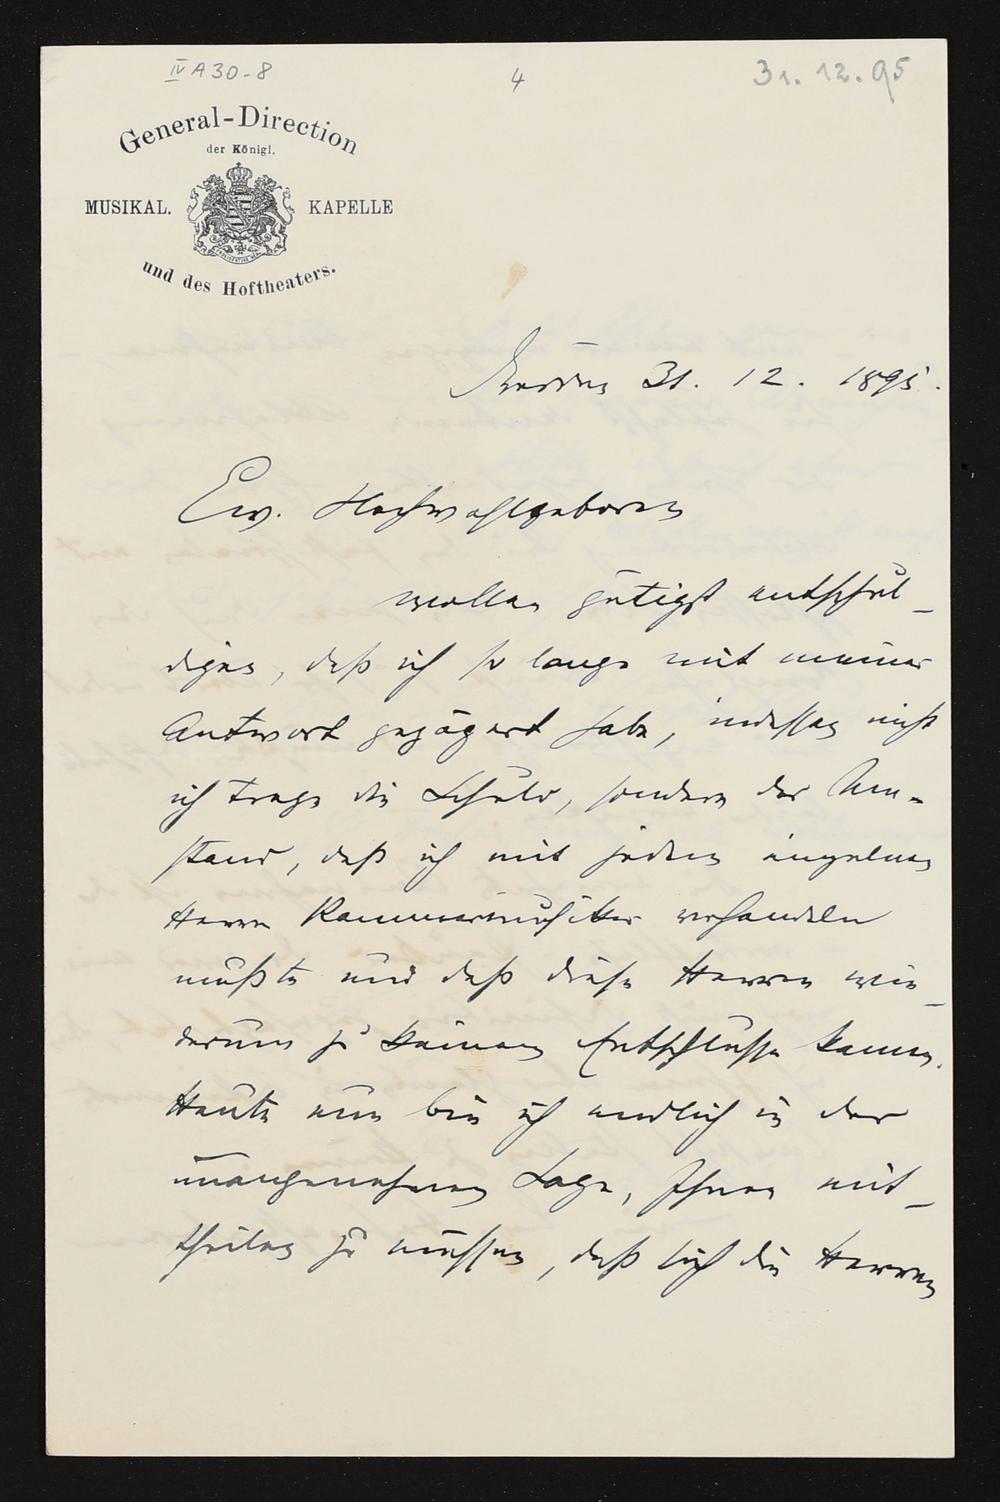 IV A 30-8
4
31. 12. 95
General-Direction
der Königl.
MUSIKAL. KAPELLE
und des Hoftheaters.
Dresden 31. 12. 1895.
Ew. Hochwohlgeboren
wollen gütigst entschul-
digen, daß ich so lange mit meiner
Antwort gezögert habe, indessen nicht
ich trage die Schuld, sondern der Um-
stand, daß ich mit jedem einzelnen
Herrn Kammermusiker verhandeln
mußte und daß diese Herren wie-
derum zu keinem Entschlusse kamen.
Heute nun bin ich endlich in der
unangenehmen Lage, Ihnen mit-
theilen zu müssen, daß sich die Herren